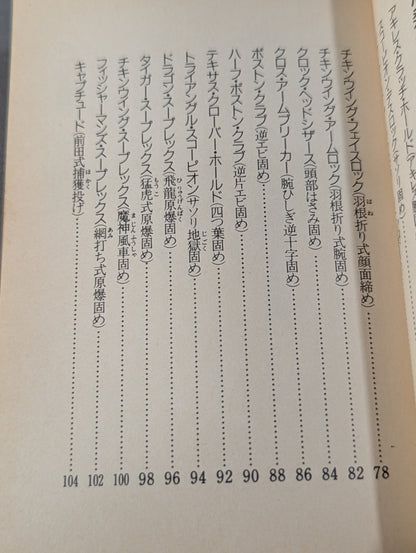 アキレス・クラッチ・ホールド
チキンウイング・フェイスロック(羽根折り式顔面締め) 78
チキンウイング・アームロック(羽根折り式腕固め) 82
クロック・ヘッドシザース(頭部はさみ固め) 84
クロス・アームブリーカー(腕ひしぎ逆十字固め) 86
ボストン・クラブ(逆エビ固め) 88
ハーフ・ボストン・クラブ(逆片エビ固め) 90
テキサス・クローバー・ホールド(四つ葉固め) 92
トライアングル・スコーピオン(サソリ地獄固め) 94
ドラゴン・スープレックス(飛龍原爆固め) 96
タイガー・スープレックス(猛虎式原爆固め) 98
チキンウイング・スープレックス(魔神風車固め) 100
フィッシャーマンズ・スープレックス(網打ち式原爆固め) 102
キャプチュード(前田式捕獲投げ) 104